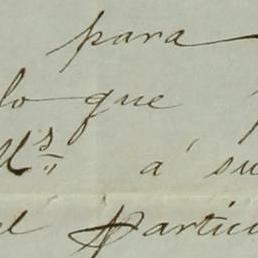 para
lo que
Us. á su
el particu